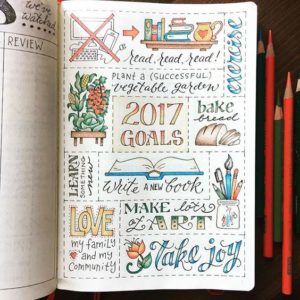 we've
watched
REVIEW
read, read, read!
exercise
PLANT A (SUCCESSFUL)
vegetable garden
2017
GOALS
bake
bread
LEARN
SOMETHING
new
write A NEW BOOK
MAKE lots
of ART
LOVE
my family
and my
community
take joy